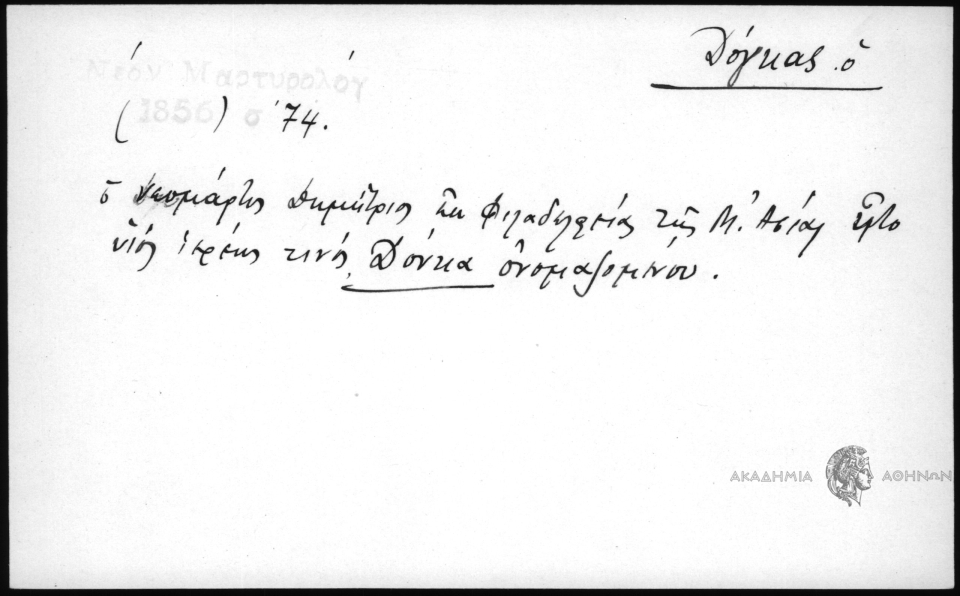 Δόγκας ὁ
Νέον Μαρτυρολόγ
(1856) σ 74.
ὁ νεομάρτυς Δημήτριος ἐκ Φιλαδελφείας τῆς Μ. Ἀσίας ἦτο
υἱός ἱερέως τινός Δόνκα ὀνομαζομένου.
ΑΚΑΔΗΜΙΑ ΑΘΗΝΩΝ